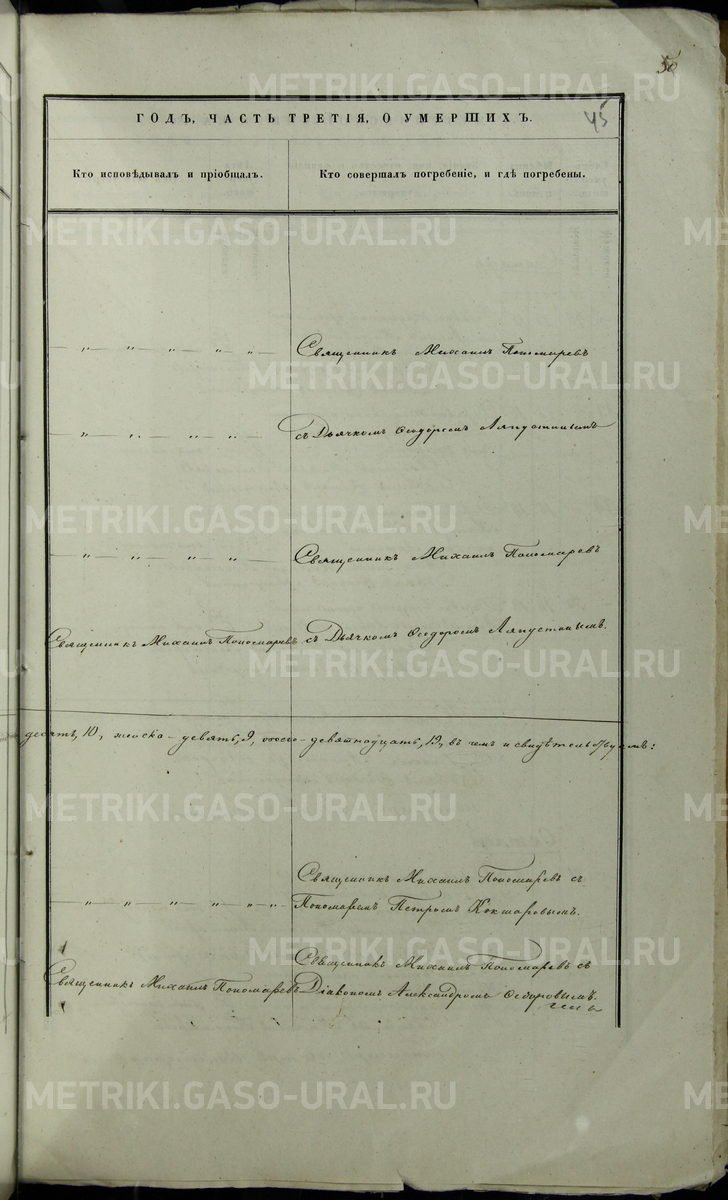 50
45
ГОДЪ, ЧАСТЬ ТРЕТІЯ, О УМЕРШИХЪ.
Кто исповѣдывалъ и пріобщалъ.
Кто совершалъ погребеніе, и гдѣ погребены.
Священникъ Михаилъ Пономаревъ
съ Дьячкомъ Ѳеодоромъ Ляпустинымъ
Священникъ Михаилъ Пономаревъ
Священникъ Михаилъ Пономаревъ съ Дьячкомъ Ѳеодоромъ Ляпустинымъ.
десять, 10, женска - девять, 9, обоего - девятнадцать, 19, въ чемъ и свидѣтельствуемъ:
Священникъ Михаилъ Пономаревъ съ
Пономаремъ Петромъ Кокшаровымъ.
Священникъ Михаилъ Пономаревъ съ
Священникъ Михаилъ Пономаревъ Діакономъ Александромъ
METRIKI.GASO-URAL.RU